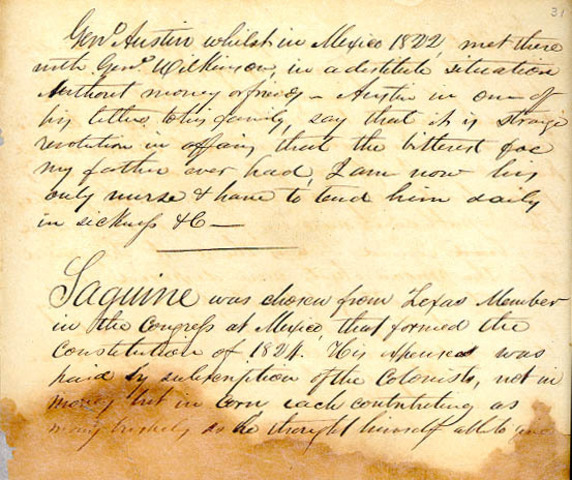 31
Genl. Austin whilst in Mexico 1822, met there
with Genl. Wilkinson, in a distitute situation
Without money or freinds – Austin in one of
his letters to his family, say that it is strange
revolution in affairs, that the bitterest foe
my father ever had, I am now his
only nurse & have to tend him daily
in sickness &C –
Saguine was chosen from Texas Member
in the Congress at Mexico, that formed the
Constitution of 1824. His expenses was
paid by subscription of the Colonists, not in
money but in Corn each contributing as
many bushels as he thought himself able to give